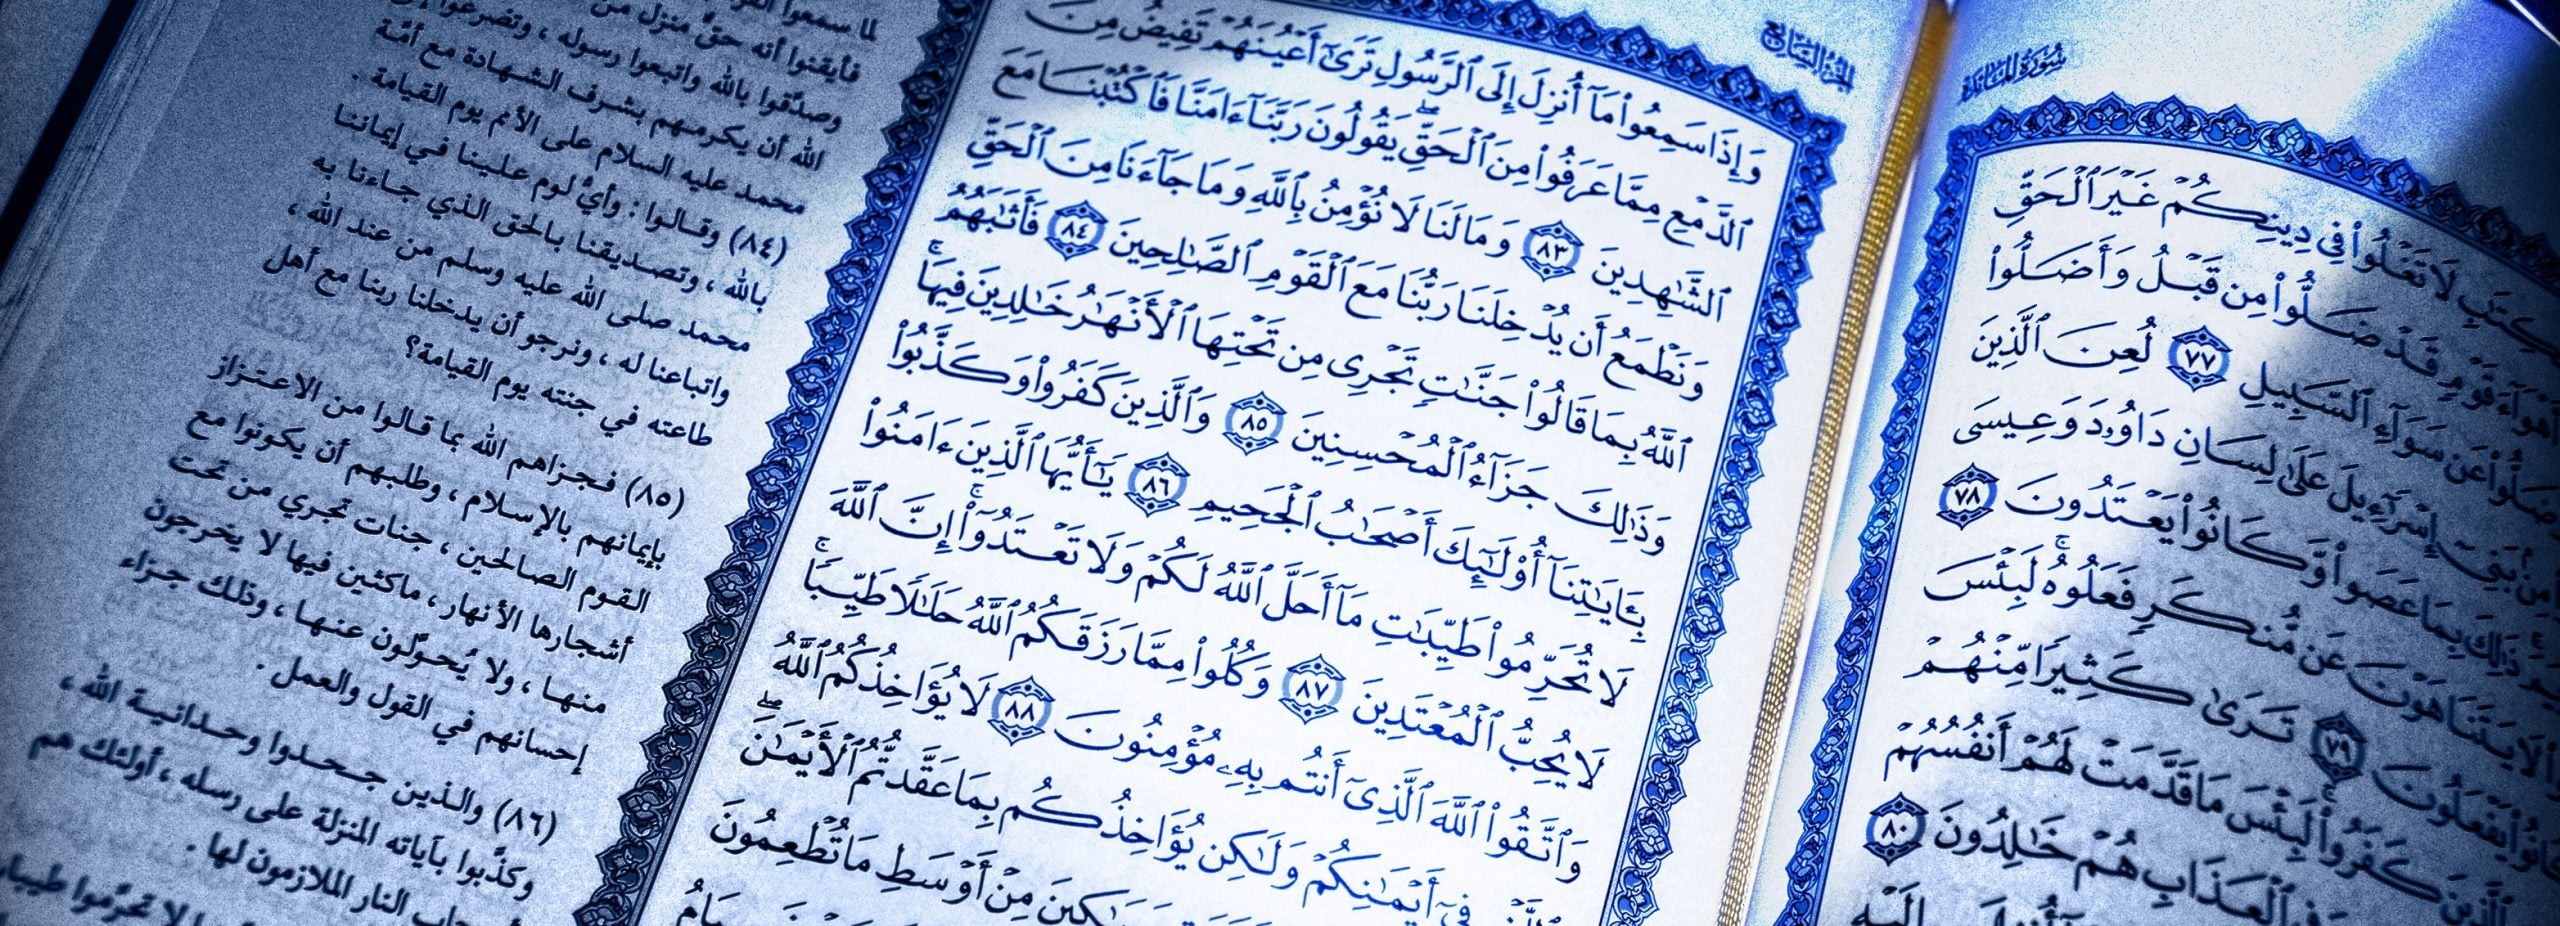 سُورَةُ المَائدَة
كِتَٰبِ لَا تَغْلُوا۟ فِى دِينِكُمْ غَيْرَ ٱلْحَقِّ
أَهْوَآءَ قَوْمٍ قَدْ ضَلُّوا۟ مِن قَبْلُ وَأَضَلُّوا۟
ضَلُّوا۟ عَن سَوَآءِ ٱلسَّبِيلِ ٧٧ لُعِنَ ٱلَّذِينَ
مِنۢ بَنِىٓ إِسْرَٰٓءِيلَ عَلَىٰ لِسَانِ دَاوُۥدَ وَعِيسَى
ذَٰلِكَ بِمَا عَصَوا۟ وَّكَانُوا۟ يَعْتَدُونَ ٧٨
لَا يَتَنَاهَوْنَ عَن مُّنكَرٍ فَعَلُوهُ ۚ لَبِئْسَ
يَفْعَلُونَ ٧٩ تَرَىٰ كَثِيرًا مِّنْهُمْ
كَفَرُوا۟ ۚ لَبِئْسَ مَا قَدَّمَتْ لَهُمْ أَنفُسُهُمْ
ٱلْعَذَابِ هُمْ خَٰلِدُونَ ٨٠
الجزء السابع
وَإِذَا سَمِعُوا۟ مَآ أُنزِلَ إِلَى ٱلرَّسُولِ تَرَىٰٓ أَعْيُنَهُمْ تَفِيضُ مِنَ
ٱلدَّمْعِ مِمَّا عَرَفُوا۟ مِنَ ٱلْحَقِّ ۖ يَقُولُونَ رَبَّنَآ ءَامَنَّا فَٱكْتُبْنَا مَعَ
ٱلشَّٰهِدِينَ ٨٣ وَمَا لَنَا لَا نُؤْمِنُ بِٱللَّهِ وَمَا جَآءَنَا مِنَ ٱلْحَقِّ
وَنَطْمَعُ أَن يُدْخِلَنَا رَبُّنَا مَعَ ٱلْقَوْمِ ٱلصَّٰلِحِينَ ٨٤ فَأَثَٰبَهُمُ
ٱللَّهُ بِمَا قَالُوا۟ جَنَّٰتٍ تَجْرِى مِن تَحْتِهَا ٱلْأَنْهَٰرُ خَٰلِدِينَ فِيهَا ۚ
وَذَٰلِكَ جَزَآءُ ٱلْمُحْسِنِينَ ٨٥ وَٱلَّذِينَ كَفَرُوا۟ وَكَذَّبُوا۟
بِـَٔايَٰتِنَآ أُو۟لَٰٓئِكَ أَصْحَٰبُ ٱلْجَحِيمِ ٨٦ يَٰٓأَيُّهَا ٱلَّذِينَ ءَامَنُوا۟
لَا تُحَرِّمُوا۟ طَيِّبَٰتِ مَآ أَحَلَّ ٱللَّهُ لَكُمْ وَلَا تَعْتَدُوٓا۟ ۚ إِنَّ ٱللَّهَ
لَا يُحِبُّ ٱلْمُعْتَدِينَ ٨٧ وَكُلُوا۟ مِمَّا رَزَقَكُمُ ٱللَّهُ حَلَٰلًا طَيِّبًا ۚ
وَٱتَّقُوا۟ ٱللَّهَ ٱلَّذِىٓ أَنتُم بِهِۦ مُؤْمِنُونَ ٨٨ لَا يُؤَاخِذُكُمُ ٱللَّهُ
فِىٓ أَيْمَٰنِكُمْ وَلَٰكِن يُؤَاخِذُكُم بِمَا عَقَّدتُّمُ ٱلْأَيْمَٰنَ ۖ
مِنْ أَوْسَطِ مَا تُطْعِمُونَ
فأيقنوا أنه حقٌّ منزل من
وصدَّقوا بالله واتبعوا رسوله ، وتضرعوا إلى
الله أن يكرمهم بشرف الشهادة مع أمَّة
محمد عليه السلام على الأمم يوم القيامة .
(٨٤) وقالوا : وأيُّ لوم علينا في إيماننا
بالله ، وتصديقنا بالحق الذي جاءنا به
محمد صلى الله عليه وسلم من عند الله ،
واتباعنا له ، ونرجو أن يدخلنا ربنا مع أهل
طاعته في جنته يوم القيامة؟
(٨٥) فجزاهم الله بما قالوا من الاعتزاز
بإيمانهم بالإسلام ، وطلبهم أن يكونوا مع
القوم الصالحين ، جنات تجري من تحت
أشجارها الأنهار ، ماكثين فيها لا يخرجون
منها ، ولا يُحوَّلون عنها ، وذلك جزاء
إحسانهم في القول والعمل .
(٨٦) والذين جحدوا وحدانية الله ،
وكذَّبوا بآياته المنزلة على رسله ، أولئك هم
النار الملازمون لها .
لا تحرِّموا طيبات